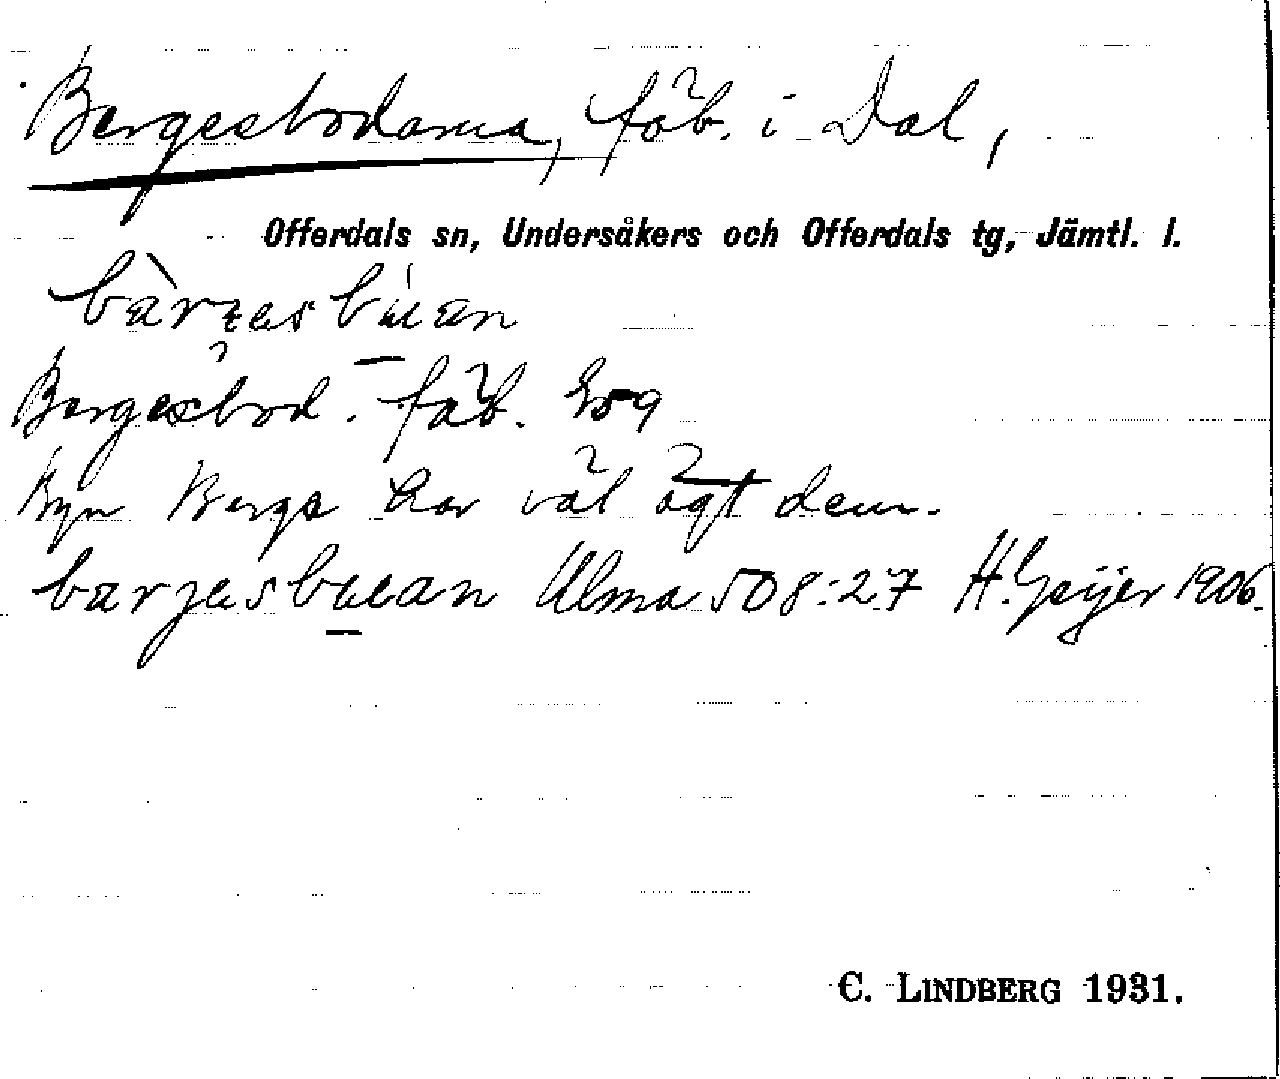 Bergesbodarna, fäb. i Dal,
Offerdals sn, Undersåkers och Offerdals tg, Jämtl. l.
bàrzesbúan
Bergesbod. fäb.
Byn Berge har väl ägt dem.
barjesbuan Ulma 508:27 H. Geijer 1906.
C. LINDBERG 1931.